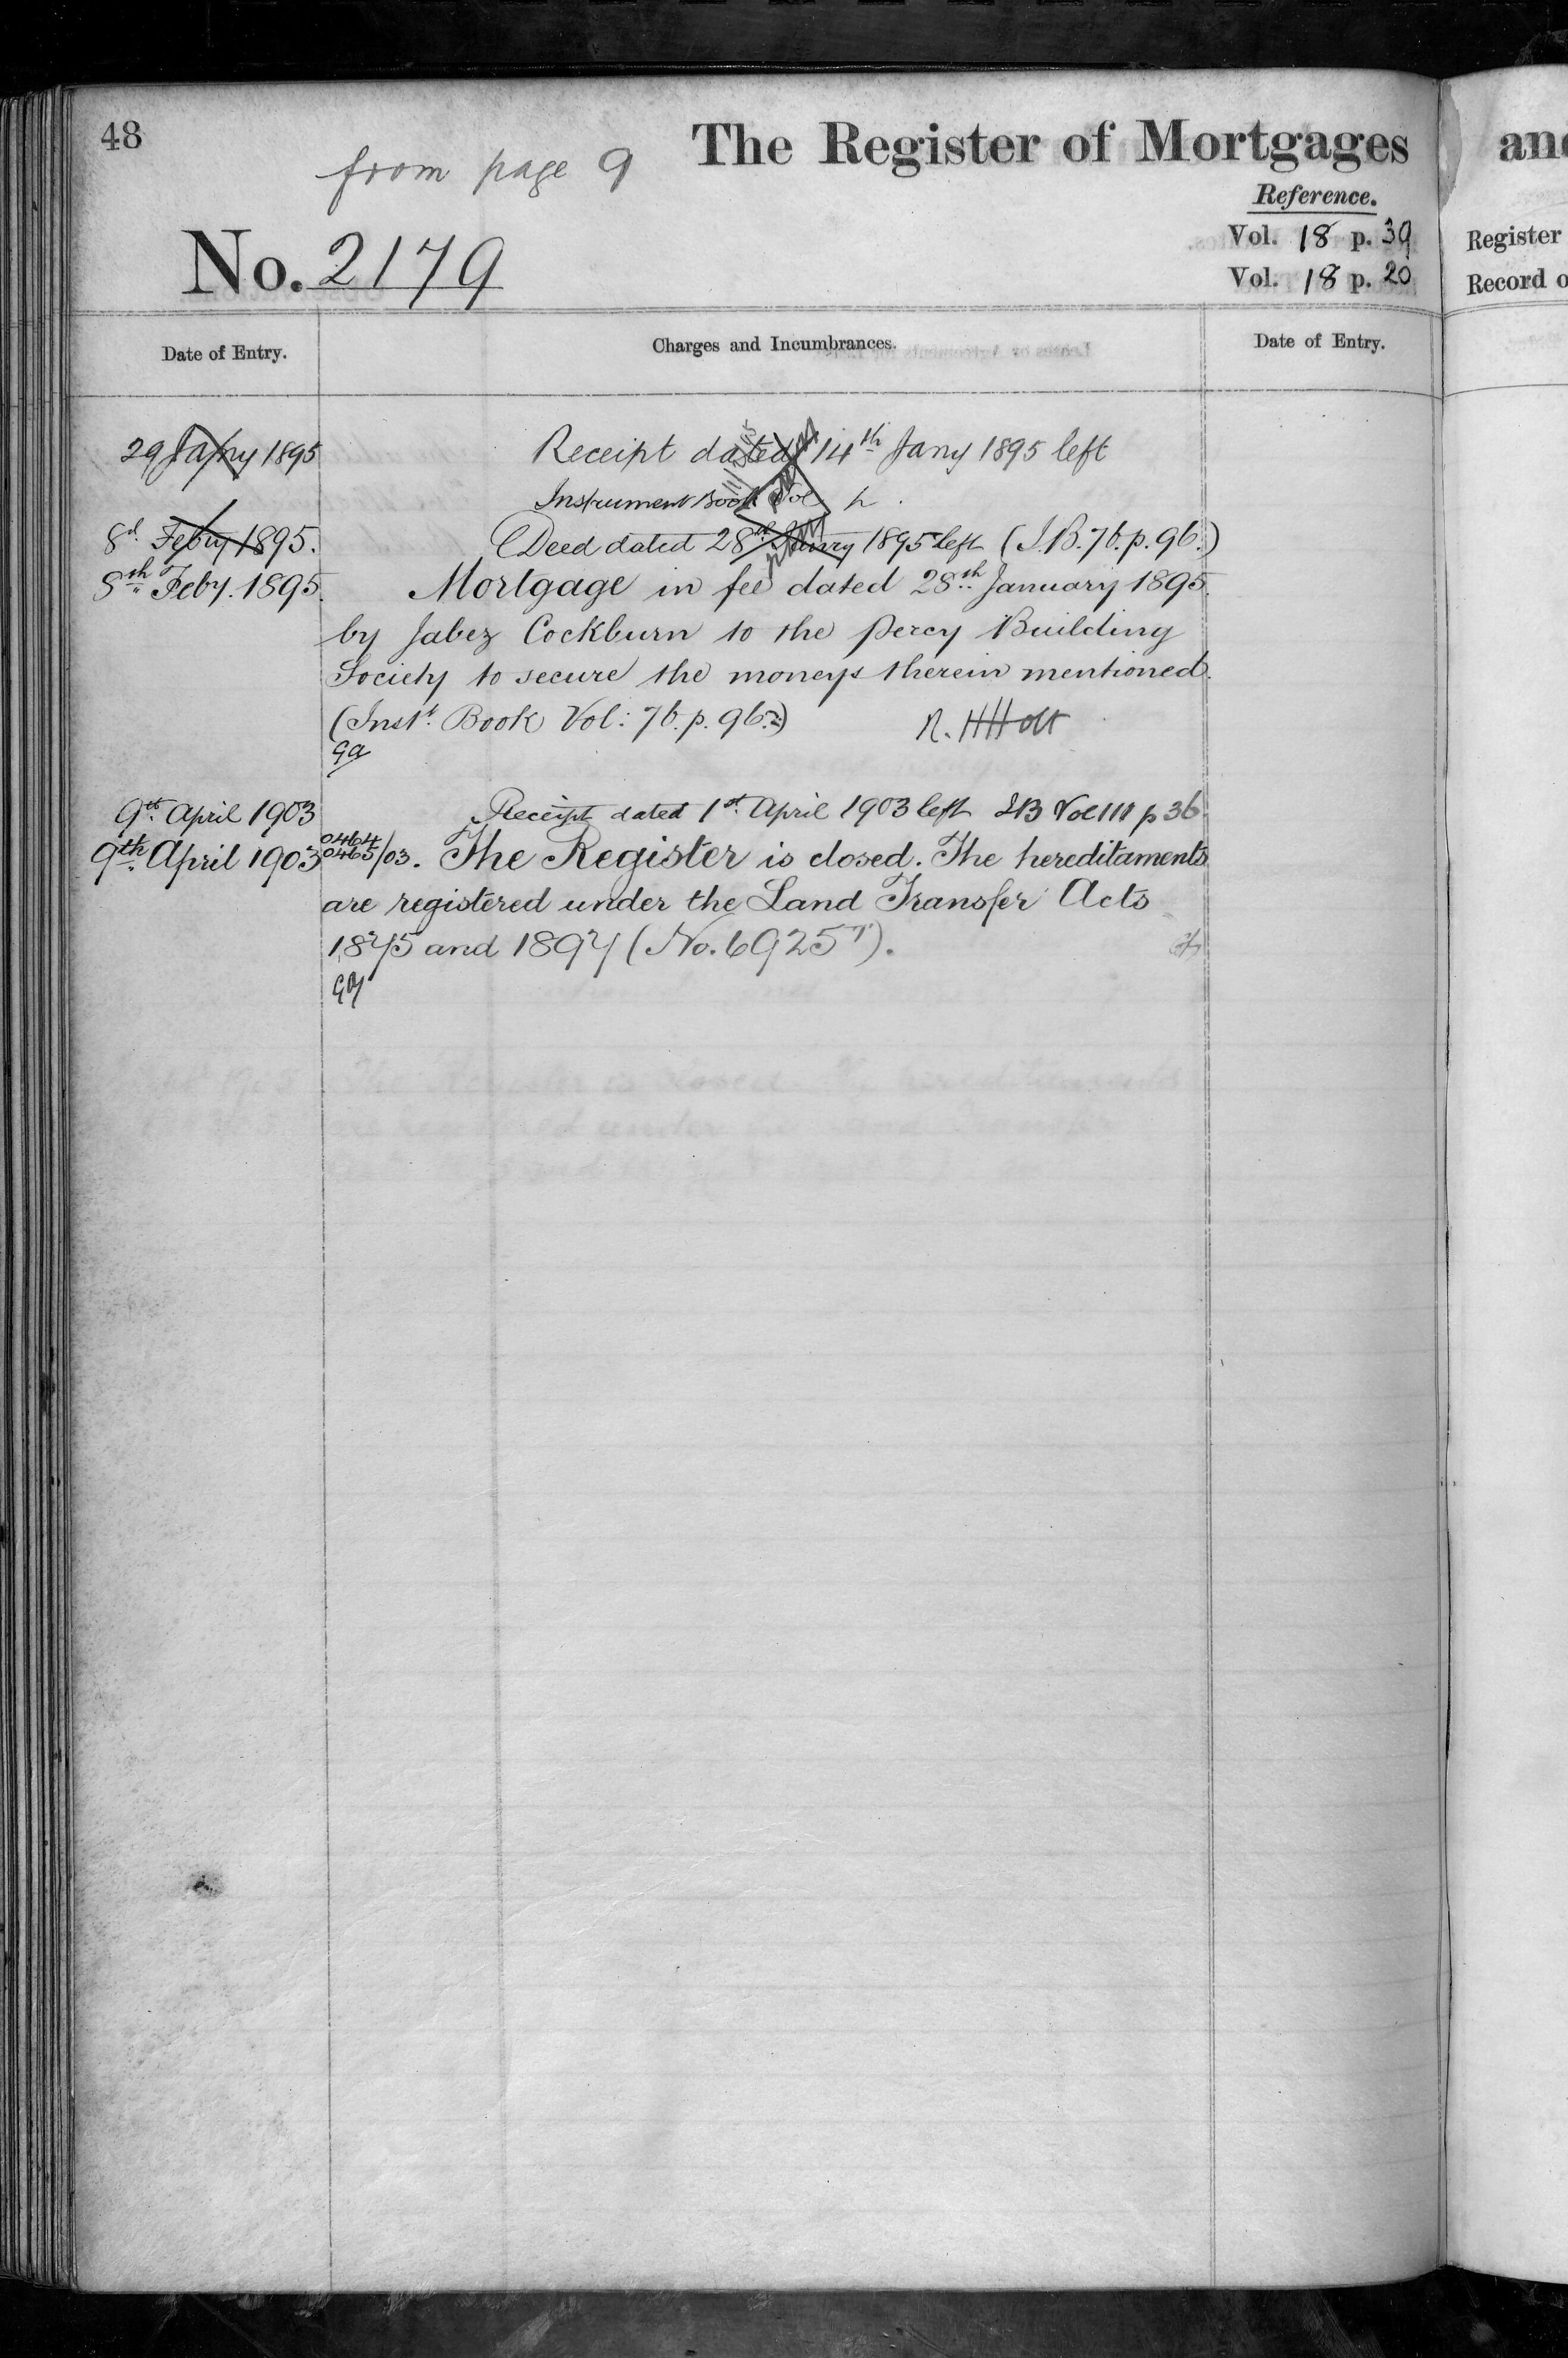 48
from page 9
The Register of Mortgages
and
Reference.
Vol. 18 p. 39
Register
No. 2179
Vol. 18 p. 20
Record o
Date of Entry.
Charges and Incumbrances.
Date of Entry.
29 Jany 1895
Receipt dated 14th Jany 1895 left
Instrument Book Vol
8th Feby 1895.
Deed dated 28th Janry 1895 left (I.B. 76. p. 96.)
8th Feby. 1895.
Mortgage in fee dated 28th January 1895.
by Jabez Cockburn to the Percy Building
Society to secure the moneys therein mentioned.
(Inst. Book Vol: 76. p. 96.)
R. H Holt
9th April 1903
Receipt dated 1st April 1903 left IB Vol 111 p 36.
9th April 1903
0464
0465/03. The Register is closed. The hereditaments
are registered under the Land Transfer Acts
1875 and 1897 (No. 6925T).